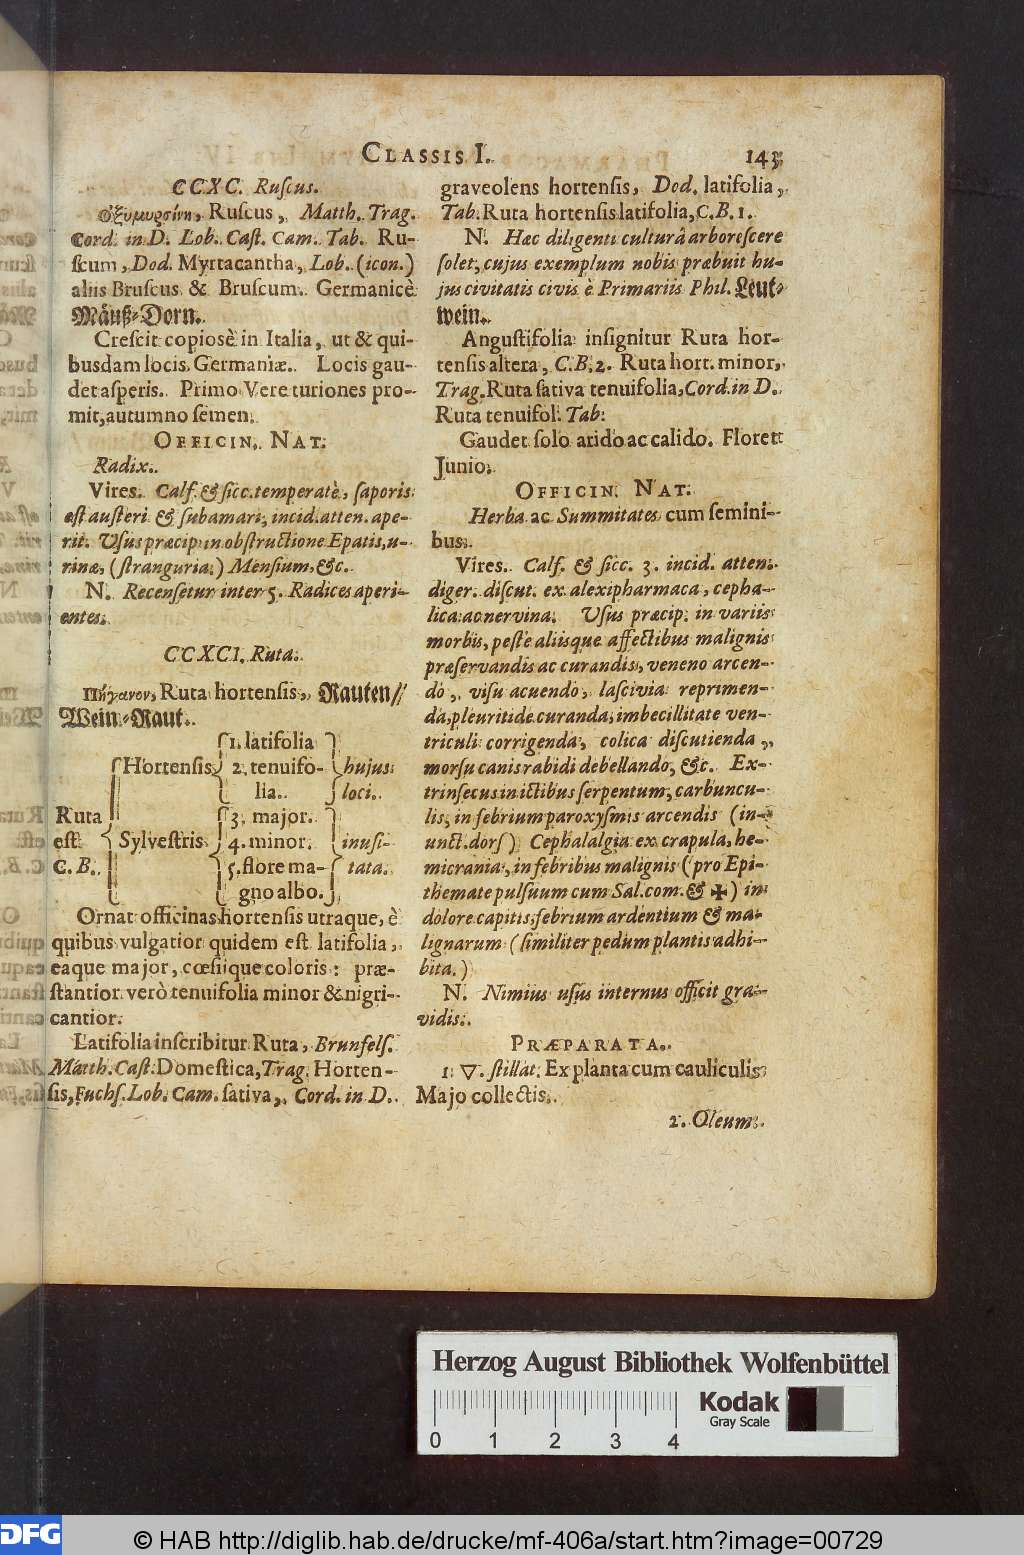 CLASSIS I. 143
CCXC. Ruſcus.
Ὀξυμυρσίνη, Ruſcus, Matth. Trag.
Cord. in D. Lob. Caſt. Cam. Tab. Ru-
ſcum, Dod. Myrtacantha, Lob. (icon.)
aliis Bruſcus & Bruſcum. Germanicè
Mäuß-Dorn.
Creſcit copiosè in Italia, ut & qui-
busdam locis Germaniæ. Locis gau-
det aſperis. Primo Vere turiones pro-
mit, autumno ſemen.
OFFICIN. NAT.
Radix.
Vires. Calf. & ſicc. temperatè, ſaporis
eſt auſteri & ſubamari, incid. atten. ape-
rit. Uſus præcip. in obſtructione Epatis, u-
rinæ, (ſtranguria.) Menſium, &c.
N. Recenſetur inter 5. Radices aperi-
entes.
CCXCI. Ruta.
Πήγανον, Ruta hortenſis, Rauten/
Wein-Raut.
1. latifolia
Hortenſis 2. tenuifo- hujus
lia. loci.
Ruta 3. major.
eſt Sylveſtris 4. minor. inuſi-
C. B. 5. flore ma- tata.
gno albo.
Ornat officinas hortenſis utraque, è
quibus vulgatior quidem eſt latifolia,
eaque major, cœſiique coloris: præ-
ſtantior verò tenuifolia minor & nigri-
cantior.
Latifolia inſcribitur Ruta, Brunfelſ.
Matth. Caſt. Domeſtica, Trag. Horten-
ſis, Fuchſ. Lob. Cam. ſativa, Cord. in D.
graveolens hortenſis, Dod. latifolia,
Tab. Ruta hortenſis latifolia, C. B. 1.
N. Hæc diligenti culturâ arboreſcere
ſolet, cujus exemplum nobis præbuit hu-
jus civitatis civis è Primariis Phil. Leut-
wein.
Anguſtifolia inſignitur Ruta hor-
tenſis altera, C. B. 2. Ruta hort. minor,
Trag. Ruta ſativa tenuifolia, Cord. in D.
Ruta tenuifol. Tab.
Gaudet ſolo arido ac calido. Floret
Junio.
OFFICIN. NAT.
Herba ac Summitates cum ſemini-
bus.
Vires. Calf. & ſicc. 3. incid. atten.
diger. diſcut. ex alexipharmaca, cepha-
lica ac nervina. Uſus præcip. in variis
morbis, peſte aliisque affectibus malignis
præſervandis ac curandis, veneno arcen-
do, viſu acuendo, laſcivia reprimen-
da, pleuritide curanda, imbecillitate ven-
triculi corrigenda, colica diſcutienda,
morſu canis rabidi debellando, &c. Ex-
trinſecus in ictibus ſerpentum, carbuncu-
lis, in febrium paroxyſmis arcendis (in-
unct. dorſ) Cephalalgia ex crapula, he-
micrania, in febribus malignis (pro Epi-
themate pulſuum cum Sal. com. & ✠) in
dolore capitis, febrium ardentium & ma-
lignarum (ſimiliter pedum plantis adhi-
bita.)
N. Nimius uſus internus officit gra-
vidis.
PRÆPARATA.
1. ▽. ſtillat. Ex planta cum cauliculis
Majo collectis.
2. Oleum.
Herzog August Bibliothek Wolfenbüttel
Kodak
Gray Scale
0 1 2 3 4
DFG © HAB http://diglib.hab.de/drucke/mf-406a/start.htm?image=00729